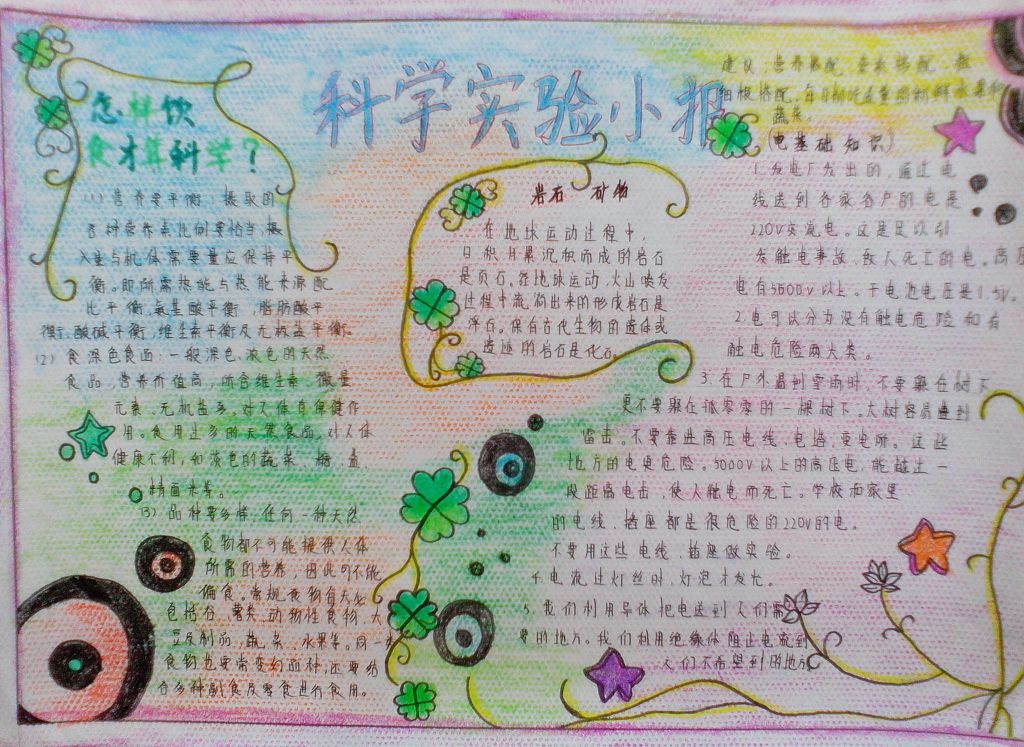 科学实验小报
怎样饮
食才算科学？
(1)营养要平衡：摄取的
各种营养素比例要恰当，摄
入量与机体需要量应保持平
衡。即所需热能与热能来源配
比平衡，氨基酸平衡，脂肪酸平
衡，酸碱平衡，维生素平衡及无机盐平衡。
(2)食深色食面：一般深色、浓色的天然
食品，营养价值高，所含维生素、微量
元素、无机盐多，对人体有保健作
用。食用过多的天然食品，对人体
健康不利，如淡色的蔬菜、糖、盐、
精面米等。
(3)品种要多样，任何一种天然
食物都不可能提供人体
所需的营养，因此可不能
偏食。常规食物有大
包括谷、薯类、动物性食物、大
豆及制品，蔬菜、水果等。同一类
食物也要常变幻面种，还要结
合多种副食及零食进行食用。
岩石 矿物
在地球运动过程中，
日积月累沉积而成的岩石
是页石。在地球运动，火山喷发
过程中流淌出来的形成岩石是
浮石。保存古代生物的遗体或
遗迹的岩石是化石。
建议：营养
粗细搭配，每日都吃适量的新鲜水果和
蔬菜。
(电基础知识)
1.发电厂发出的，通过电
线送到各家各户的电是
220V交流电。这是足以引
发触电事故，致人死亡的电。高压
电有5000V以上。干电池电压是1.5V。
2.电可以分为没有触电危险和有
触电危险两大类。
3.在户外遇到雷雨时，不要聚在树下
更不要聚在孤零零的一棵树下。大树容易遭到
雷击。不要靠进高压电线、电塔、变电所。这些
地方的电更危险。5000V以上的高压电，能越过一
段距离电击，使人触电而死亡。学校和家里
的电线、插座都是很危险的220V的电。
不要用这些电线、插座做实验。
4.电流过灯丝时，灯泡才发光。
5.我们利用导体把电送到人们需
要的地方。我们利用绝缘体阻止电流到
人们不希望到的地方。